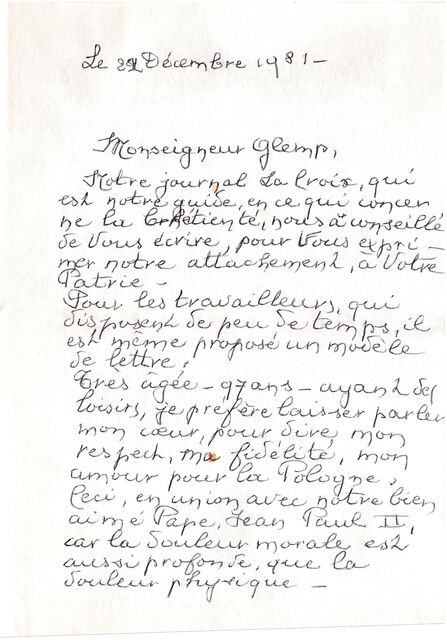 Le 22 Décembre 1981 -
Monseigneur Glemp,
Notre journal La Croix, qui
est notre guide, en ce qui concer
ne la Chrétienté, nous a conseillé
de Vous écrire, pour Vous expri -
mer notre attachement, à Votre
Patrie -
Pour les travailleurs, qui
disposent de peu de temps, il
est même proposé un modèle
de lettre.
Très âgée - 97 ans - ayant des
loisirs, je préfère laisser parler
mon cœur, pour dire mon
respect, ma fidélité, mon
amour pour la Pologne.
Ceci, en union avec notre bien
aimé Pape, Jean Paul II,
car la douleur morale est
aussi profonde, que la
douleur physique -